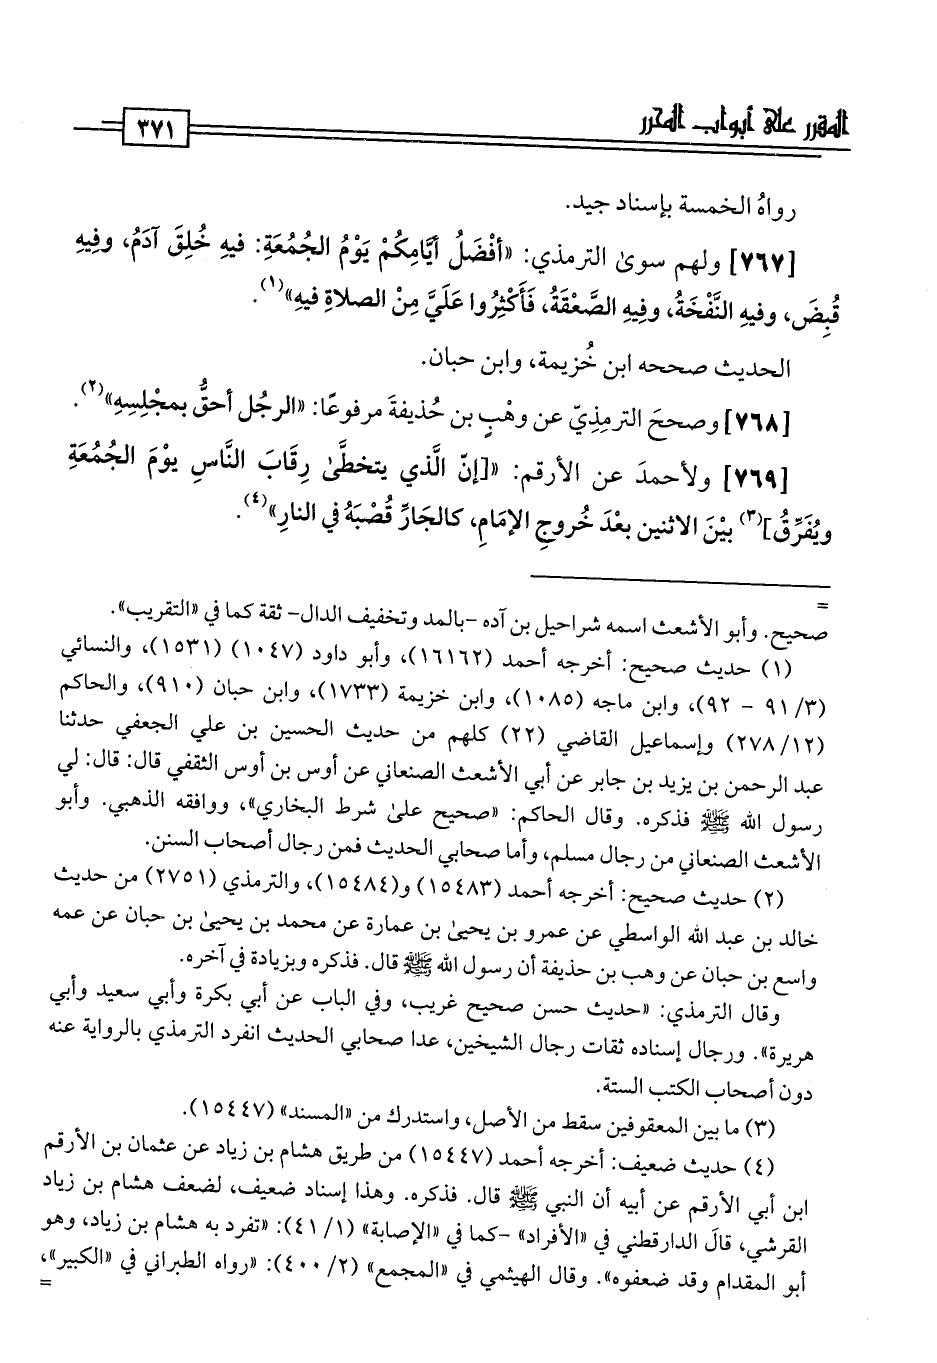 المقرر على أبواب المحرر
٣٧١
رواهُ الخمسة بإسناد جيد.
[٧٦٧] ولهم سوىٰ الترمذي: «أفْضَلُ أيَّامِكُمْ يَوْمُ الجُمُعَةِ: فيهِ خُلِقَ آدَمُ، وفِيهِ
قُبِضَ، وفيهِ النَّفْخَةُ، وفِيهِ الصَّعْقَةُ، فَأَكْثِرُوا عَلَيَّ مِنْ الصلاةِ فيهِ»(١).
الحديث صححه ابن خُزيمة، وابن حبان.
[٧٦٨] وصححَ الترمِذِيّ عن وهْبٍ بن حُذيفةَ مرفوعًا: «الرجُل أحقُّ بمجْلِسِهِ»(٢).
[٧٦٩] ولأحمدَ عن الأرقم: «[إنّ الَّذي يتخطَّىٰ رِقَابَ النَّاسِ يوْمَ الجُمُعَةِ
ويُفَرِّقُ](٣) بيْنَ الاثنين بعْدَ خُروجِ الإمَامِ، كالجَارِّ قُصْبَهُ في النارِ»(٤).
=
صحيح. وأبو الأشعث اسمه شراحيل بن آده -بالمد وتخفيف الدال- ثقة كما في «التقريب».
(١) حديث صحيح: أخرجه أحمد (١٦١٦٢)، وأبو داود (١٠٤٧) (١٥٣١)، والنسائي
(٩١/٣ - ٩٢)، وابن ماجه (١٠٨٥)، وابن خزيمة (١٧٣٣)، وابن حبان (٩١٠)، والحاكم
(٢٧٨/١٢) وإسماعيل القاضي (٢٢) كلهم من حديث الحسين بن علي الجعفي حدثنا
عبد الرحمن بن يزيد بن جابر عن أبي الأشعث الصنعاني عن أوس بن أوس الثقفي قال: قال: لي
رسول الله ﷺ فذكره. وقال الحاكم: «صحيح علىٰ شرط البخاري»، ووافقه الذهبي. وأبو
الأشعث الصنعاني من رجال مسلم، وأما صحابي الحديث فمن رجال أصحاب السنن.
(٢) حديث صحيح: أخرجه أحمد (١٥٤٨٣) و(١٥٤٨٤)، والترمذي (٢٧٥١) من حديث
خالد بن عبد الله الواسطي عن عمرو بن يحيىٰ بن عمارة عن محمد بن يحيىٰ بن حبان عن عمه
واسع بن حبان عن وهب بن حذيفة أن رسول الله ﷺ قال. فذكره وبزيادة في آخره.
وقال الترمذي: «حديث حسن صحيح غريب، وفي الباب عن أبي بكرة وأبي سعيد وأبي
هريرة». ورجال إسناده ثقات رجال الشيخين، عدا صحابي الحديث انفرد الترمذي بالرواية عنه
دون أصحاب الكتب الستة.
(٣) ما بين المعقوفين سقط من الأصل، واستدرك من «المسند» (١٥٤٤٧).
(٤) حديث ضعيف: أخرجه أحمد (١٥٤٤٧) من طريق هشام بن زياد عن عثمان بن الأرقم
ابن أبي الأرقم عن أبيه أن النبي ﷺ قال. فذكره. وهذا إسناد ضعيف، لضعف هشام بن زياد
القرشي، قالَ الدارقطني في «الأفراد» -كما في «الإصابة» (٤١/١): «تفرد به هشام بن زياد، وهو
أبو المقدام وقد ضعفوه». وقال الهيثمي في «المجمع» (٤٠٠/٢): «رواه الطبراني في «الكبير»،
=